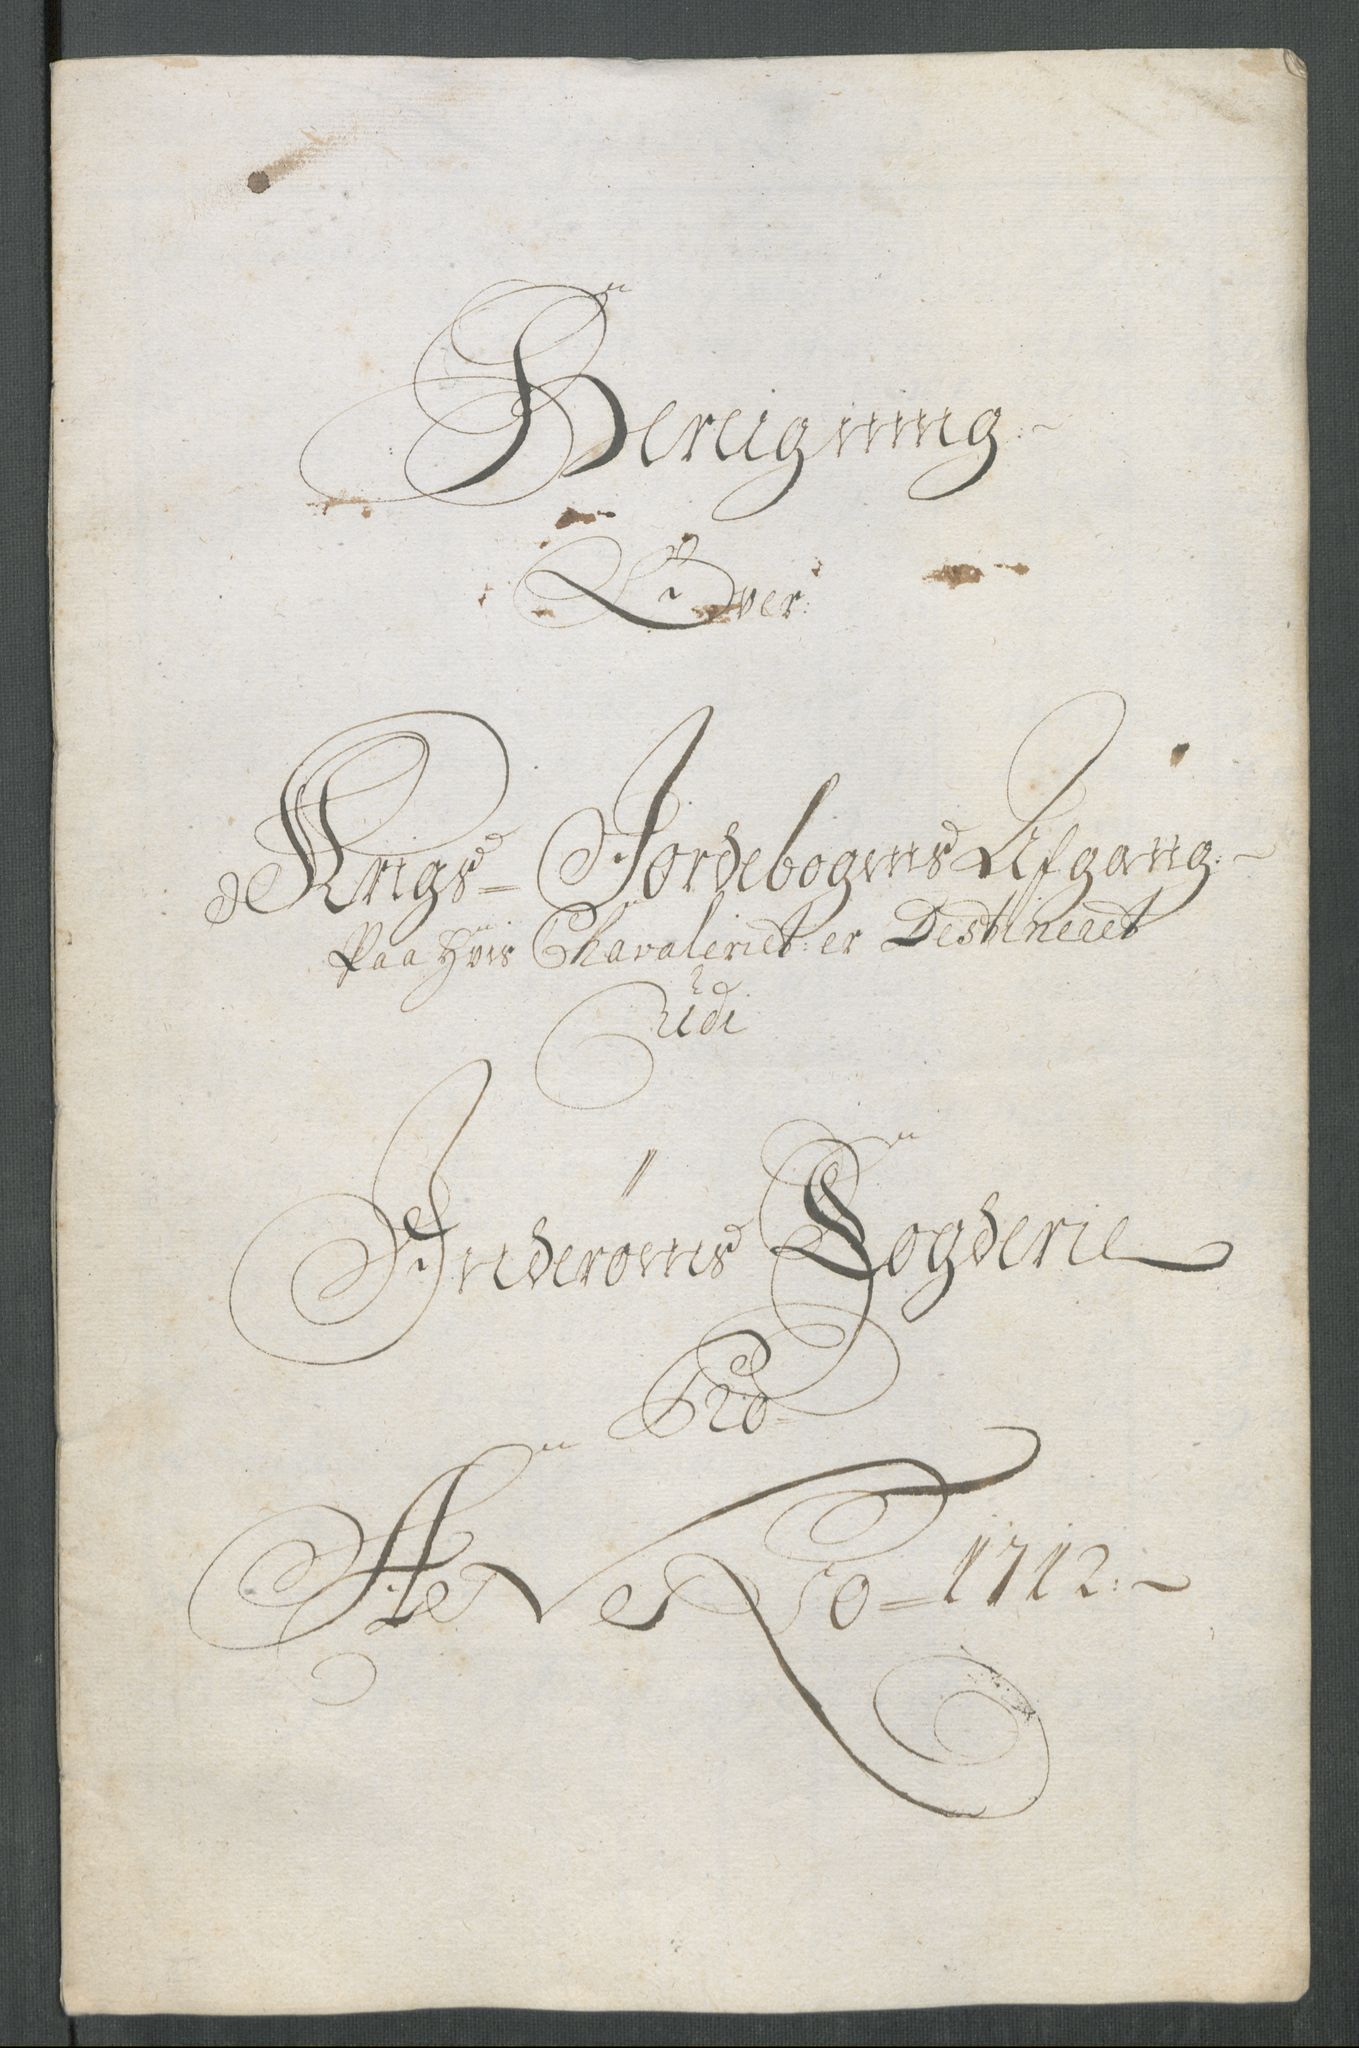 Bereigning:~
Over:
Krigs= Jordebogens Afgang:~
Paa Hvis Chavaleriet: er Destineret
Udi
Inderøens Fogderie
Pro
1712:~